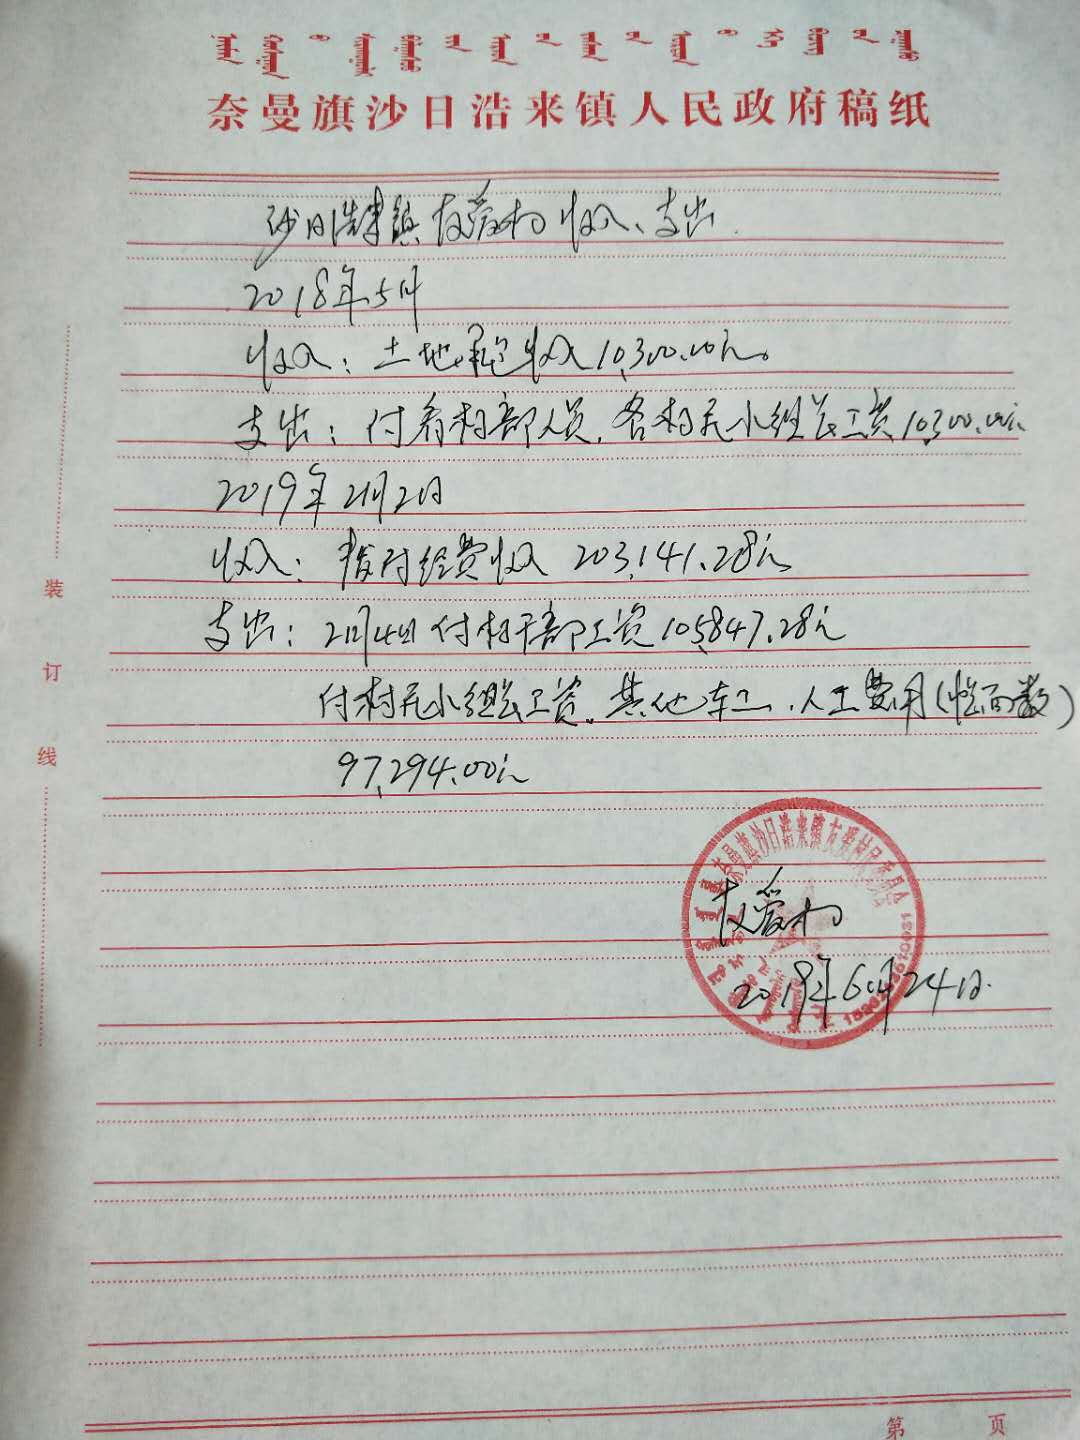 奈曼旗沙日浩来镇人民政府稿纸
沙日浩来镇友爱村收入、支出
2018年5月
收入：土地承包收入10,300.00元。
支出：付看村部人员、各村民小组长工资10,300.00元
2019年2月2日
收入：拨付经费收入 203,141.28元
支出：2月4日付村干部工资105,847.28元
付村民小组长工资。其他车工、人工费用(帐面数)
97,294.00元
装
订
线
友爱村
2019年6月24日.
第 页